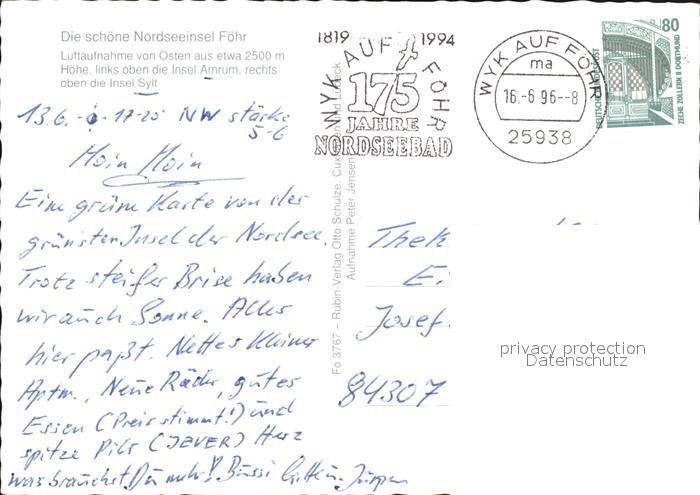 Die schöne Nordseeinsel Föhr
Luftaufnahme von Osten aus etwa 2500 m
Höhe, links oben die Insel Amrum, rechts
oben die Insel Sylt
1819 1994
WYK AUF FÖHR
175
JAHRE
NORDSEEBAD
WYK AUF FÖHR
ma
16.-6 96--8
25938
80
DEUTSCHE BUNDESPOST
ZECHE ZOLLERN II DORTMUND
13.6. 17-20 NW stärke
5-6
Moin Moin
Eine grüne Karte von der
grünsten Insel der Nordsee.
Trotz steifer Brise haben
wir auch Sonne. Alles
hier paßt. Nettes kleines
Aptm., Neue Räder, gutes
Essen (Preis stimmt!) und
spitze Pils (JEVER) Herz
was brauchst Du mehr! Bussi Jürgen
Fö 3767 – Rubin-Verlag Otto Schulze, Cuxhaven und Lübeck
Aufnahme Peter Jensen
Thek
E.
Josef
84307
privacy protection
Datenschutz